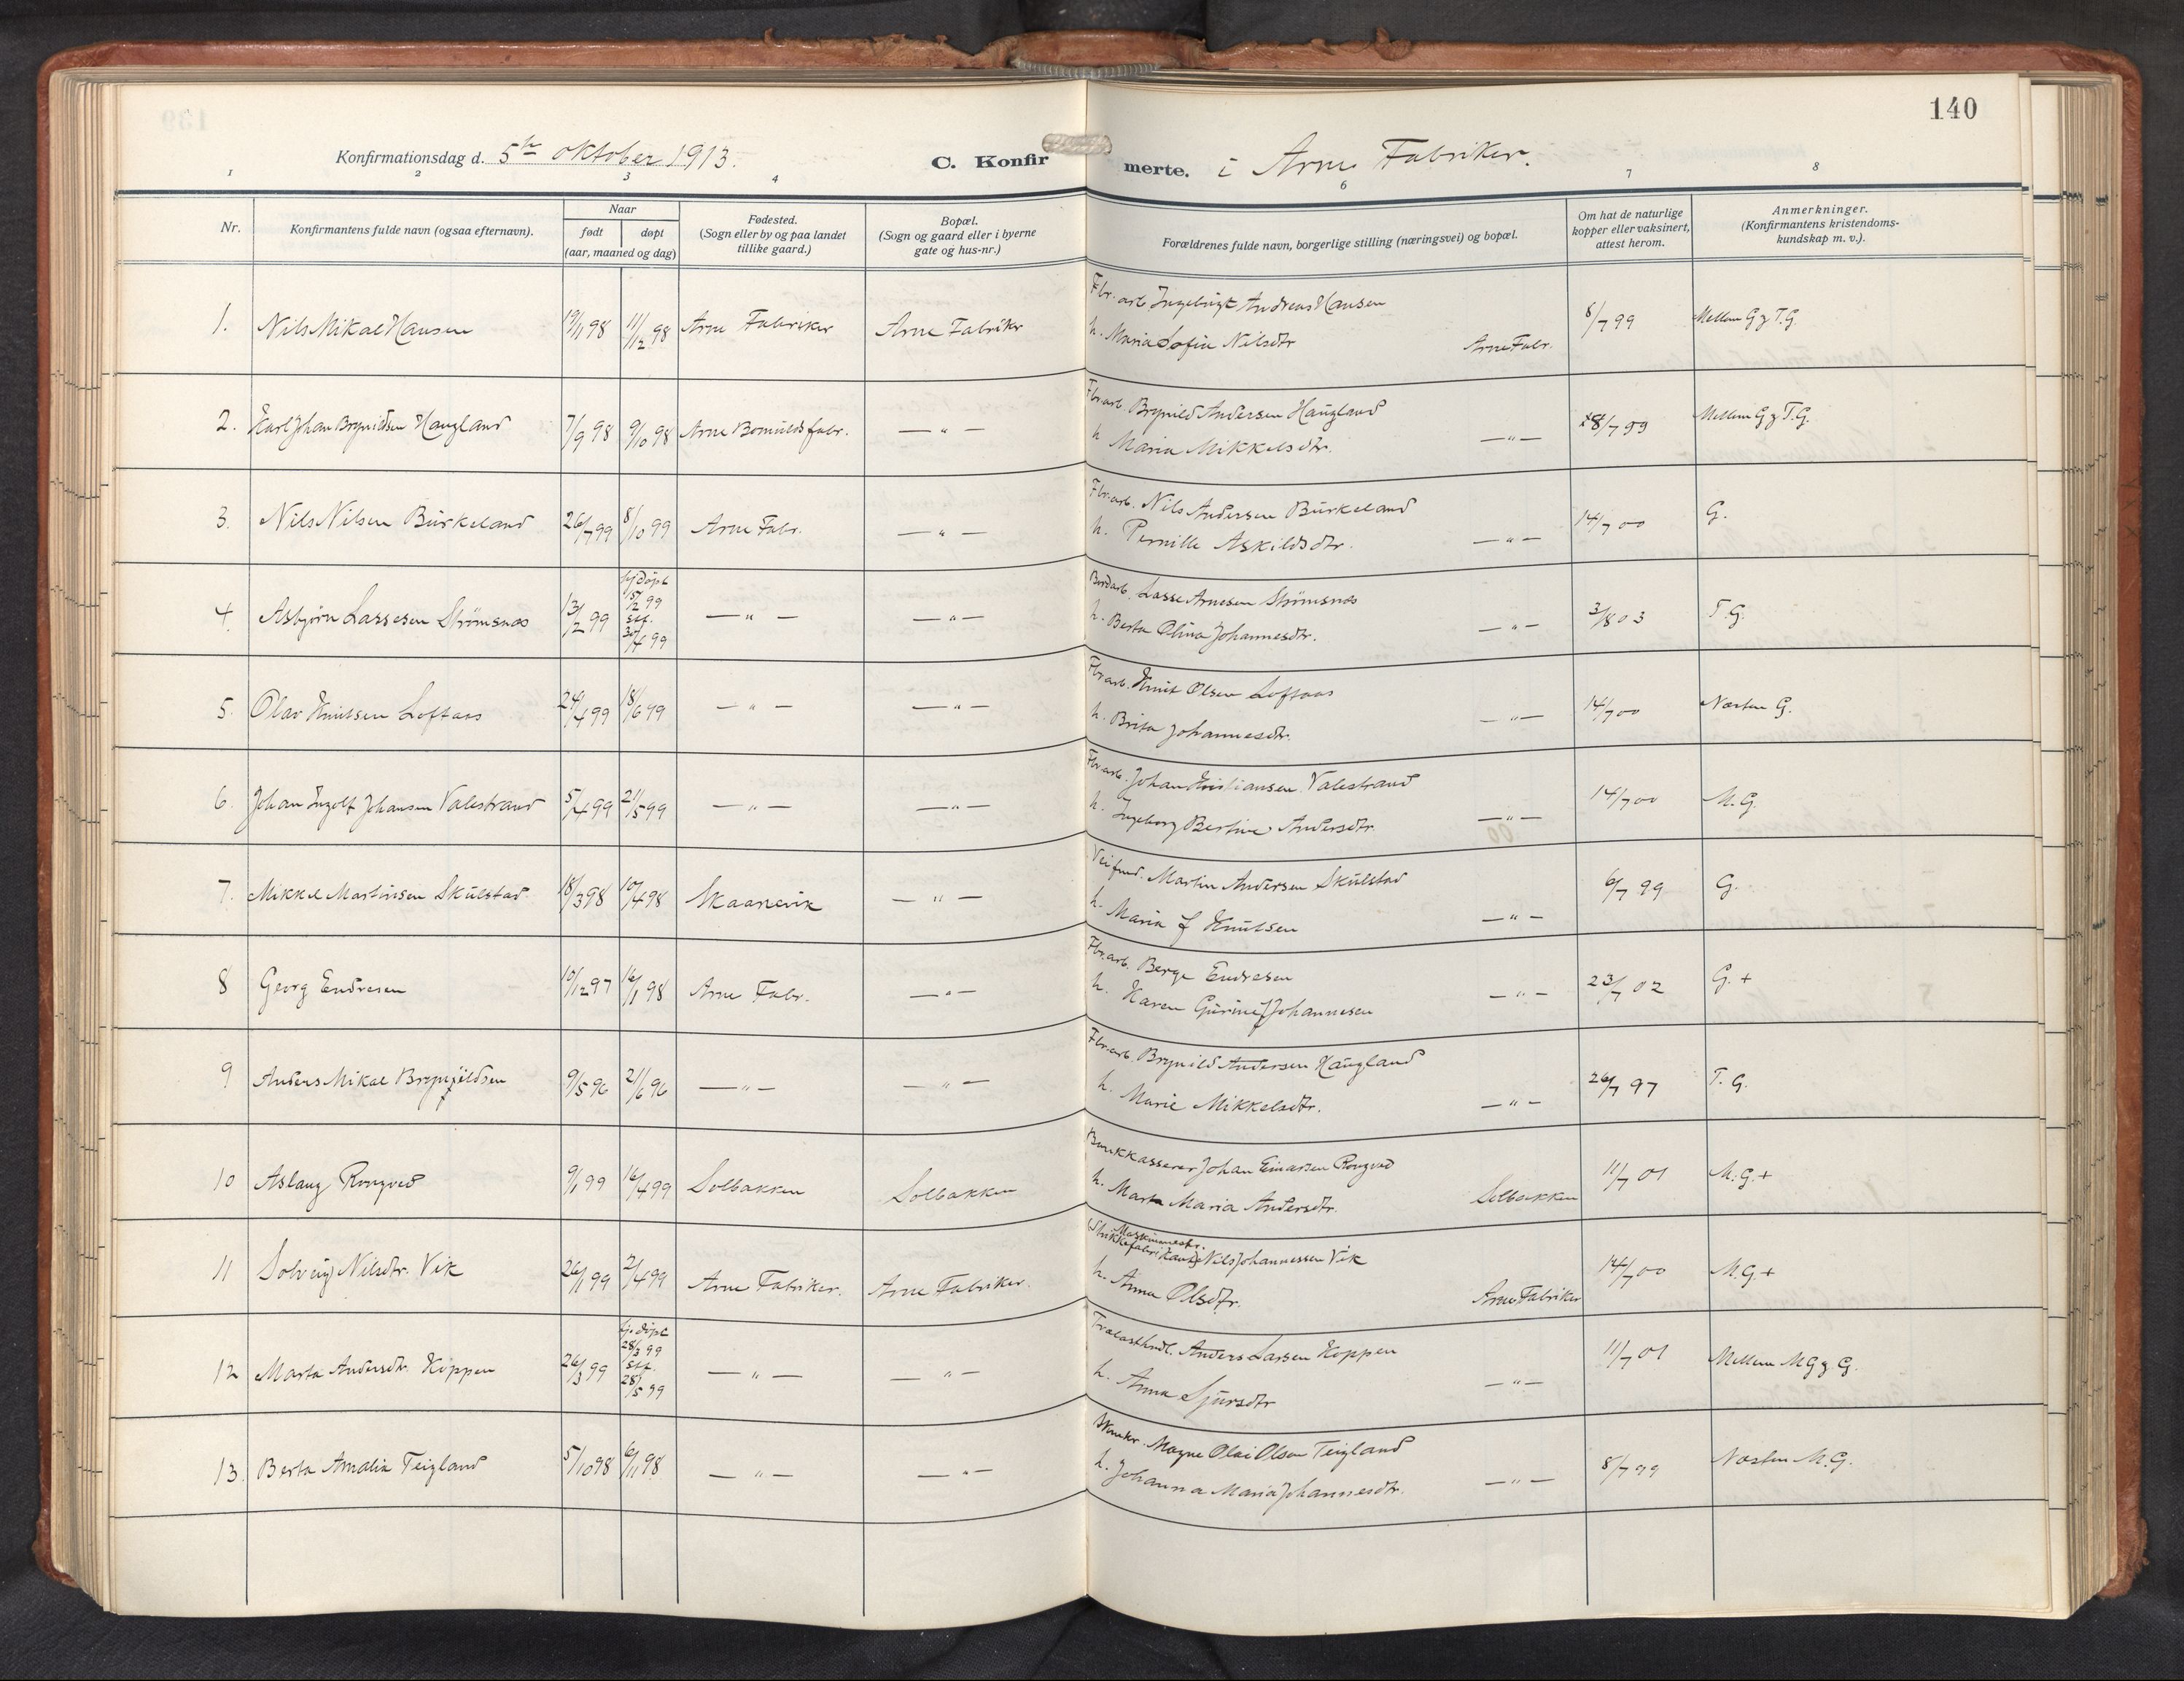 140
Konfirmationsdag d. 5te oktober 1913.
C. Konfirmerte. i Arne Fabriker.
1 2 3 4 6 7 8
Nr.
Konfirmantens fulde navn (ogsaa efternavn).
Naar
født
døpt
(aar, maaned og dag)
Fødested.
(Sogn eller by og paa landet
tillike gaard.)
Bopæl.
(Sogn og gaard eller i byerne
gate og hus-nr.)
Forældrenes fulde navn, borgerlige stilling (næringsvei) og bopæl.
Om hat de naturlige
kopper eller vaksinert,
attest herom.
Anmerkninger.
(Konfirmantens kristendoms-
kundskap m. v.).
1. Nils Mikal Hansen 19/11 98 11/12 98 Arne Fabriker Arne Fabriker
Fbr. arb. Ingebrigt Andreas Hansen
h. Maria Sofia Nilsdtr Arne Fabr. 8/7 99 Mellem G g T.G.
2. Karl Johan Brynildsen Haugland 7/9 98 9/10 98 Arne Bomulds fabr. — " —
Fbr arb Brynild Andersen Haugland
h Maria Mikkelsdtr. — " — 8/7 99 Mellem G g T.G.
3. Nils Nilsen Burkeland 26/7 99 8/10 99 Arne Fabr. — " —
Fbr. arb. Nils Andersen Burkeland
h. Pernille Askildsdtr. — " — 14/7 00 G.
4. Asbjørn Lassesen Strømsnes 13/2 99
hj døpt
/2 99
stf.
30/4 99
— " — — " —
Bordarb. Lasse Arnesen Strømsnes
h. Berta Olina Johannesdtr. — " — 3/8 03 T.G.
5. Olav Knutsen Loftaas 24/4 99 18/6 99 — " — — " —
Fbr arb. Knut Olsen Loftaas
h. Brita Johannesdtr. — " — 14/7 00 Næsten G.
6. Johan Ingolf Johansen Valestrand 5/4 99 21/5 99 — " — — " —
Fbr arb. Johan Kristiansen Valestrand
h. Ingeborg Bertine Andersdtr. — " — 14/7 00 M.G.
7. Mikkel Martinsen Skulstad 18/3 98 10/4 98 Skaanevik — " —
Veifund. Martin Andersen Skulstad
h. Maria f Knutsen — " — 6/7 99 G.
8 Georg Endresen 10/12 97 16/1 98 Arne Fabr. — " —
Fbr. arb. Berge Endresen
h. Karen Gurine f Johannesen — " — 23/7 02 G. +
9 Anders Mikal Brynjildsen 9/5 96 21/6 96 — " — — " —
Fbr. arb. Brynild Andersen Haugland
h. Marie Mikkelsdtr. — " — 26/7 97 T. G.
10 Aslaug Rongved 9/1 99 16/4 99 Solbakken Solbakken
Bankkasserer Johan Einarsen Rongved
h. Marta Maria Andersdtr. Solbakken 11/7 01 M.G. +
11 Solveig Nilsdtr. Vik 26/1 99 2/4 99 Arne Fabriker. Arne Fabriker.
Maskinmestr.
(Strikkefabrikant) Nils Johannessen Vik
h. Anna Olsdtr. Arne Fabriker 14/7 00 M.G. +
12 Marta Andersdtr. Koppen 26/3 99
hj. døpt
28/3 99
stf.
28/5 99
— " — — " —
Trælasthndl. Anders Larsen Koppen
h. Anna Sjursdtr — " — 11/7 01 Mellem MG g G.
13. Berta Amalia Teigland 5/10 98 6/11 98 — " — — " —
Mogne Olai Olsen Teigland
h. Johanna Maria Johannesdtr. — " — 8/7 99 Næsten M.G.